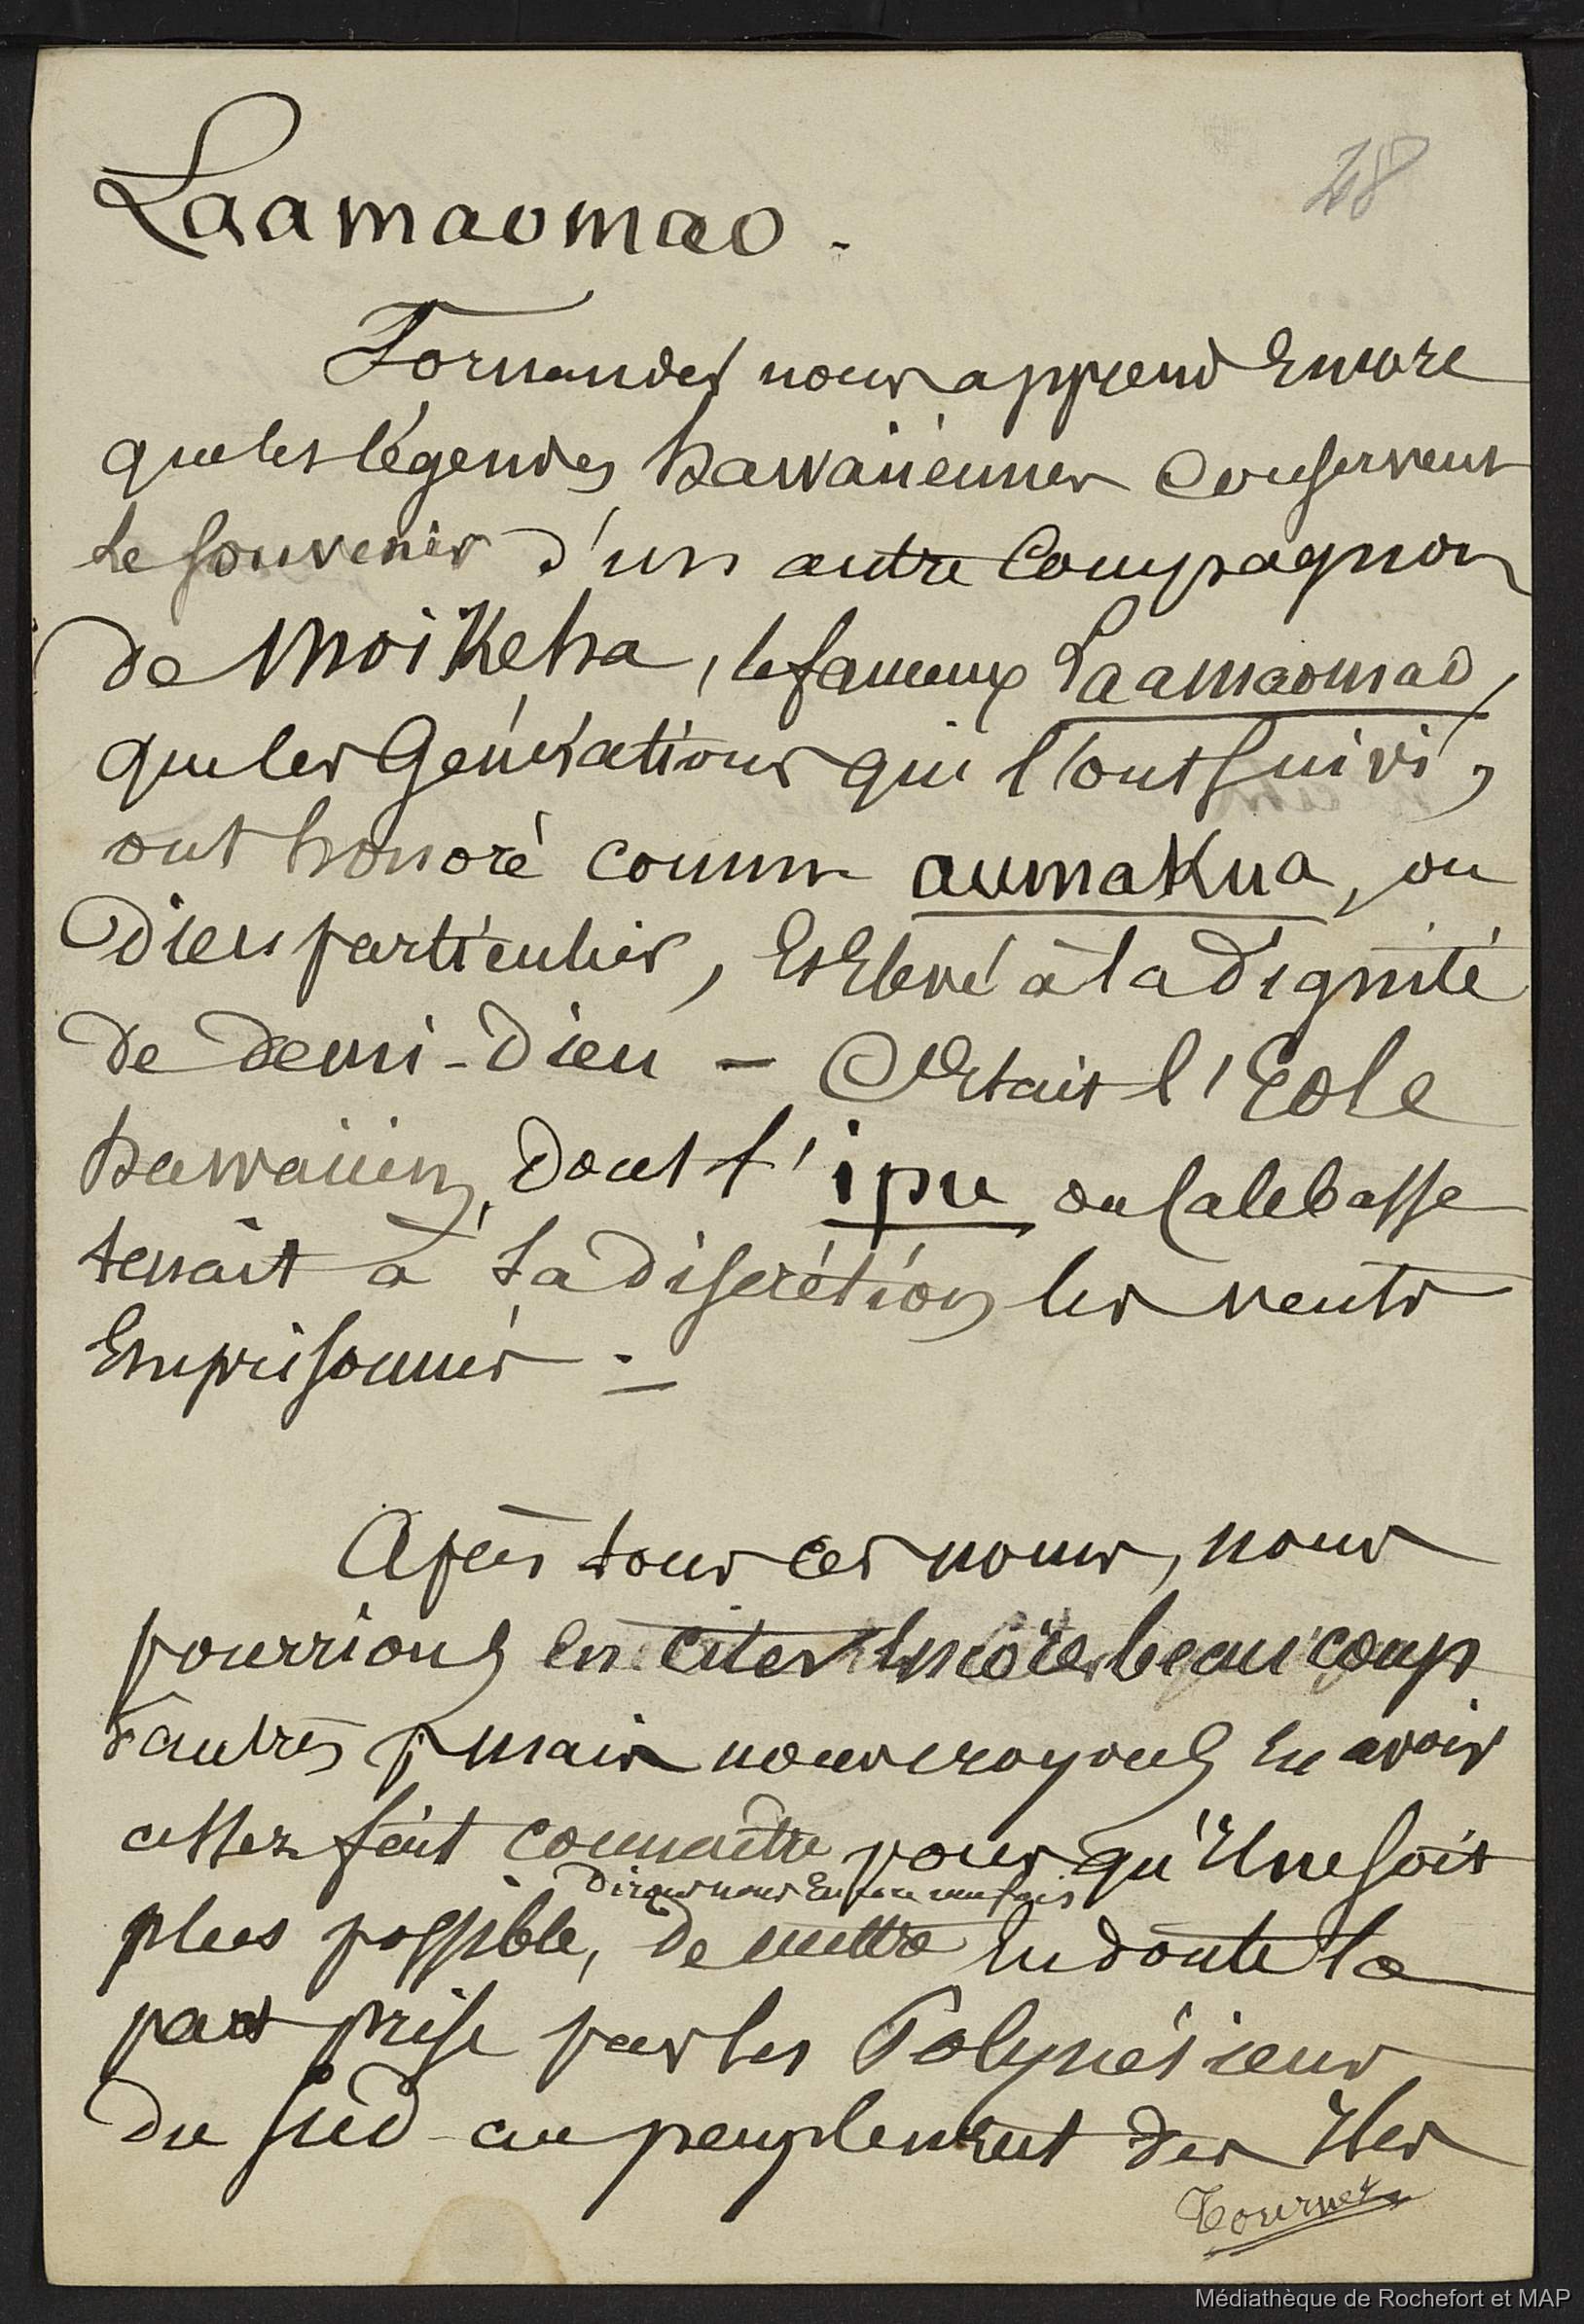 48
Laamaomao.
Fornander nous apprend encore
que les légendes hawaiiennes conservent
le souvenir d'un autre compagnon
de Moikeha, le fameux Laamaomao,
que les générations qui l'ont suivi,
ont honoré comme aumakua, ou
Dieu particulier, et élevé à la dignité
de demi-Dieu — C'était l'Eole
hawaiien, dont l'ipu ou calebasse
tenait à sa discrétion les vents
emprisonnés. —
Après tous ces noms, nous
pourrions en citer encore beaucoup
d'autres; mais nous croyons en avoir
assez fait connaître pour qu'il ne soit
dirons nous encore une fois
plus possible, de mettre en doute la
part prise par les Polynésiens
du Sud au peuplement des Iles
Tournez
Médiathèque de Rochefort et MAP